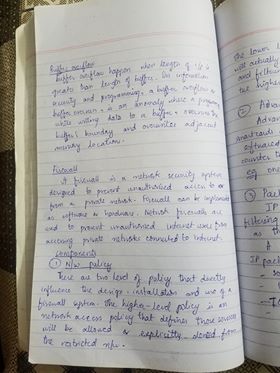 Buffer overflow
buffer overflow happen when length of i/p is
greater than length of buffer. In information
security and programming, a buffer overflow or
buffer overrun, is an anomaly where a program,
while writing data to a buffer, overruns the
buffer's boundary and overwrites adjacent
memory location.
Firewall
A firewall is a network security system
designed to prevent unauthorised access to or
from a private network. Firewall can be implemented
as software or hardware. Network firewalls are
used to prevent unauthorised internet users from
accessing private networks connected to internet.
Components
① N/w policy
There are two level of policy that directly
influence the design, installation and use of a
firewall system. the higher-level policy is an
network access policy that defines those services
will be allowed or explicitly denied from
the restricted n/w.
the lower
will actually
and filtering
the higher
②
counter
of one
③ Pack
IP
filtering
as th
A
IP pack